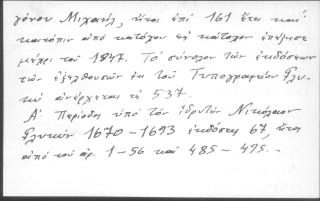 γόνου Μιχαήλ, ἤτοι ἐπί 161 ἔτη καί
κατόπιν ἀπό κάτοχον εἰς κάτοχον ἐπέζησε
μέχρι τοῦ 1847. Τό σύνολον τῶν ἐκδόσεων
τῶν ἐξελθουσῶν ἐκ τοῦ Τυπογραφείου Γλυ-
κύ ἀνέρχεται εἰς 537.
Α' Περίοδος ὑπό τόν ἱδρυτήν Νικόλαον
Γλυκύν 1670-1693 ἐκδόσεις 67, ἤτοι
ἀπό τοῦ ἀρ. 1-56 καί 485-495.-